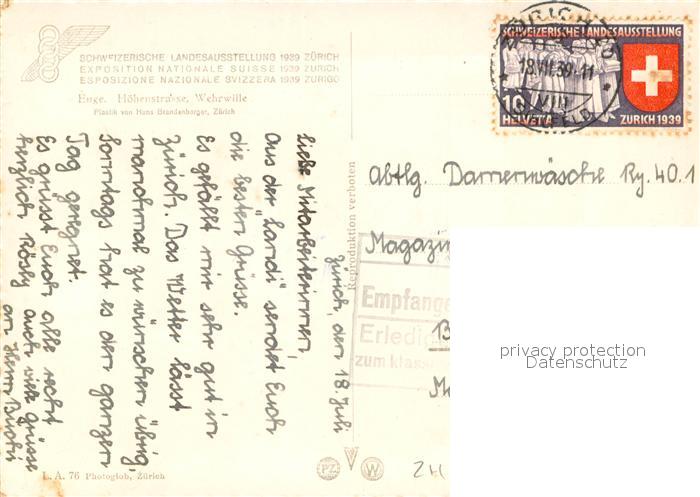 SCHWEIZERISCHE LANDESAUSSTELLUNG 1939 ZÜRICH
EXPOSITION NATIONALE SUISSE 1939 ZURICH
ESPOSIZIONE NAZIONALE SVIZZERA 1939 ZURIGO
Enge. Höhenstrasse, Wehrwille
Plastik von Hans Brandenberger, Zürich
SCHWEIZERISCHE LANDESAUSSTELLUNG
10
HELVETIA
ZURICH 1939
18.VII.39-11
VIII
Zürich, den 18. Juli
liebe Mitarbeiterinnen,
Aus der "Landi" sendet Euch
die besten Grüsse.
Es gefällt mir sehr gut in
Zürich. Das Wetter lässt
manchmal zu wünschen übrig,
Sonntags hat es den ganzen
Tag geregnet.
Es grüsst Euch alle recht
herzlich Rösly
auch viele Grüsse
an Herrn
Reproduktion verboten
Abtlg. Damenwäsche Ry. 40.1
Magazin
Empfange
Erledig
zum klass
B
M
privacy protection
Datenschutz
PZ
W
L. A. 76 Photoglob, Zürich